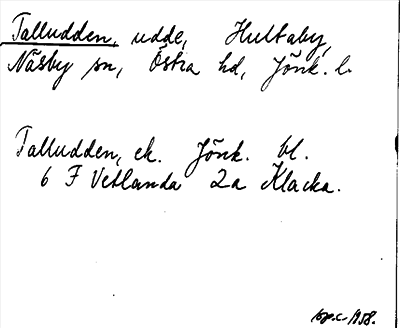 Talludden, udde, Hultaby,
Näsby sn, Östra hd, Jönk. l.
Talludden, ek. Jönk. bl.
6 F Vetlanda 2a Klacka.
1958.